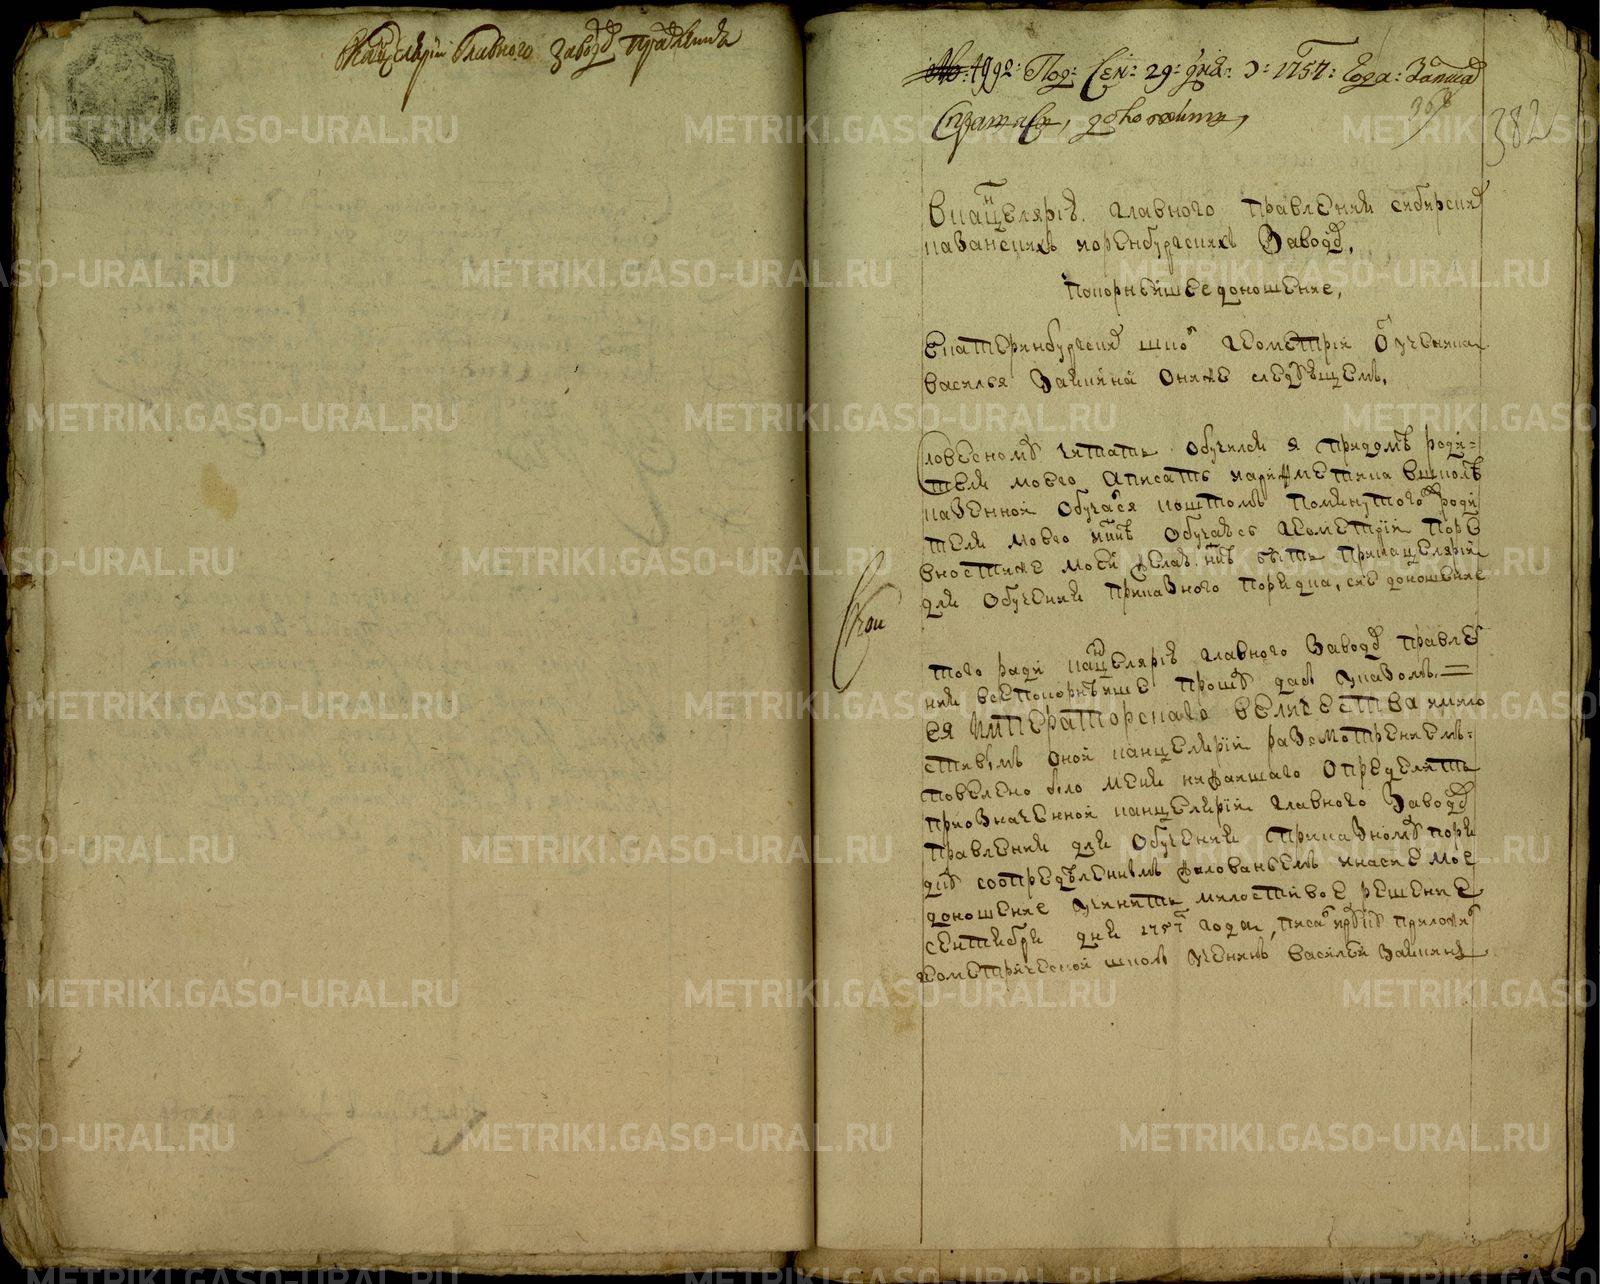 В канцелярии Главного заводов правления
№ 4992 Под: Сен: 29: дня: 1757: Года: Записа
с взятьем, доложить,
382
В канцелярию главного правления сибирских
казанских и оренбургских заводов,
покорнейшее доношение,
екатеринбургской школы геометрии от ученика
василья Зайкина о нижеследующем,
Словесному читать обучился я при доме роди=
теля моего а писать и арифметика в школе
казенной обучался коштом помянутого роди
теля моего и ныне обучаюсь геометрии
моей желаю быть при канцелярии
для обучения приказного порядка, сие доношение
того ради канцелярию главного заводов правле
ния всепокорнейше прошу дабы указом=
ея Императорского величества и мило
стивым оной канцелярии разсмотрением=
повелено было меня нижайшаго определить
при означенной канцелярии главного заводов
правления для обучения приказному поря
дку с определением жалованьем и на сие мое
доношение учинить милостивое решение
сентября дня 1757 года,
геометрической школы ученик василей Зайкин
METRIKI.GASO-URAL.RU